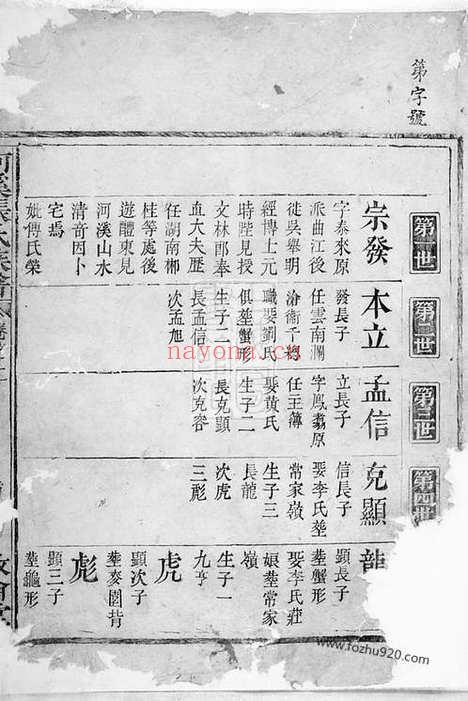 第字號
第一世
第二世
第三世
第四世
宗發
字泰來原
派曲江後
徙吳舉明
經博士元
時陞見授
文林郎奉
直大夫歷
任湖南郴
桂等處後
遊醴東見
河溪山水
清奇因卜
宅焉
妣傅氏榮
本立
發長子
任雲南瀾
滄衛千總
職娶劉氏
俱塟蟹形
生子二
長孟信
次孟旭
孟信
立長子
字鳳翥原
任主簿
娶黄氏
生子二
長克顯
次克容
克顯
信長子
娶李氏塟
常家嶺
生子三
長龍
次虎
三彪
龍
顯長子
塟蟹形
娶李氏莊
娘塟常家
嶺
生子一
九亨
虎
顯次子
塟麥園背
彪
顯三子
塟龜形
nayona.cn
www.fozhu920.com